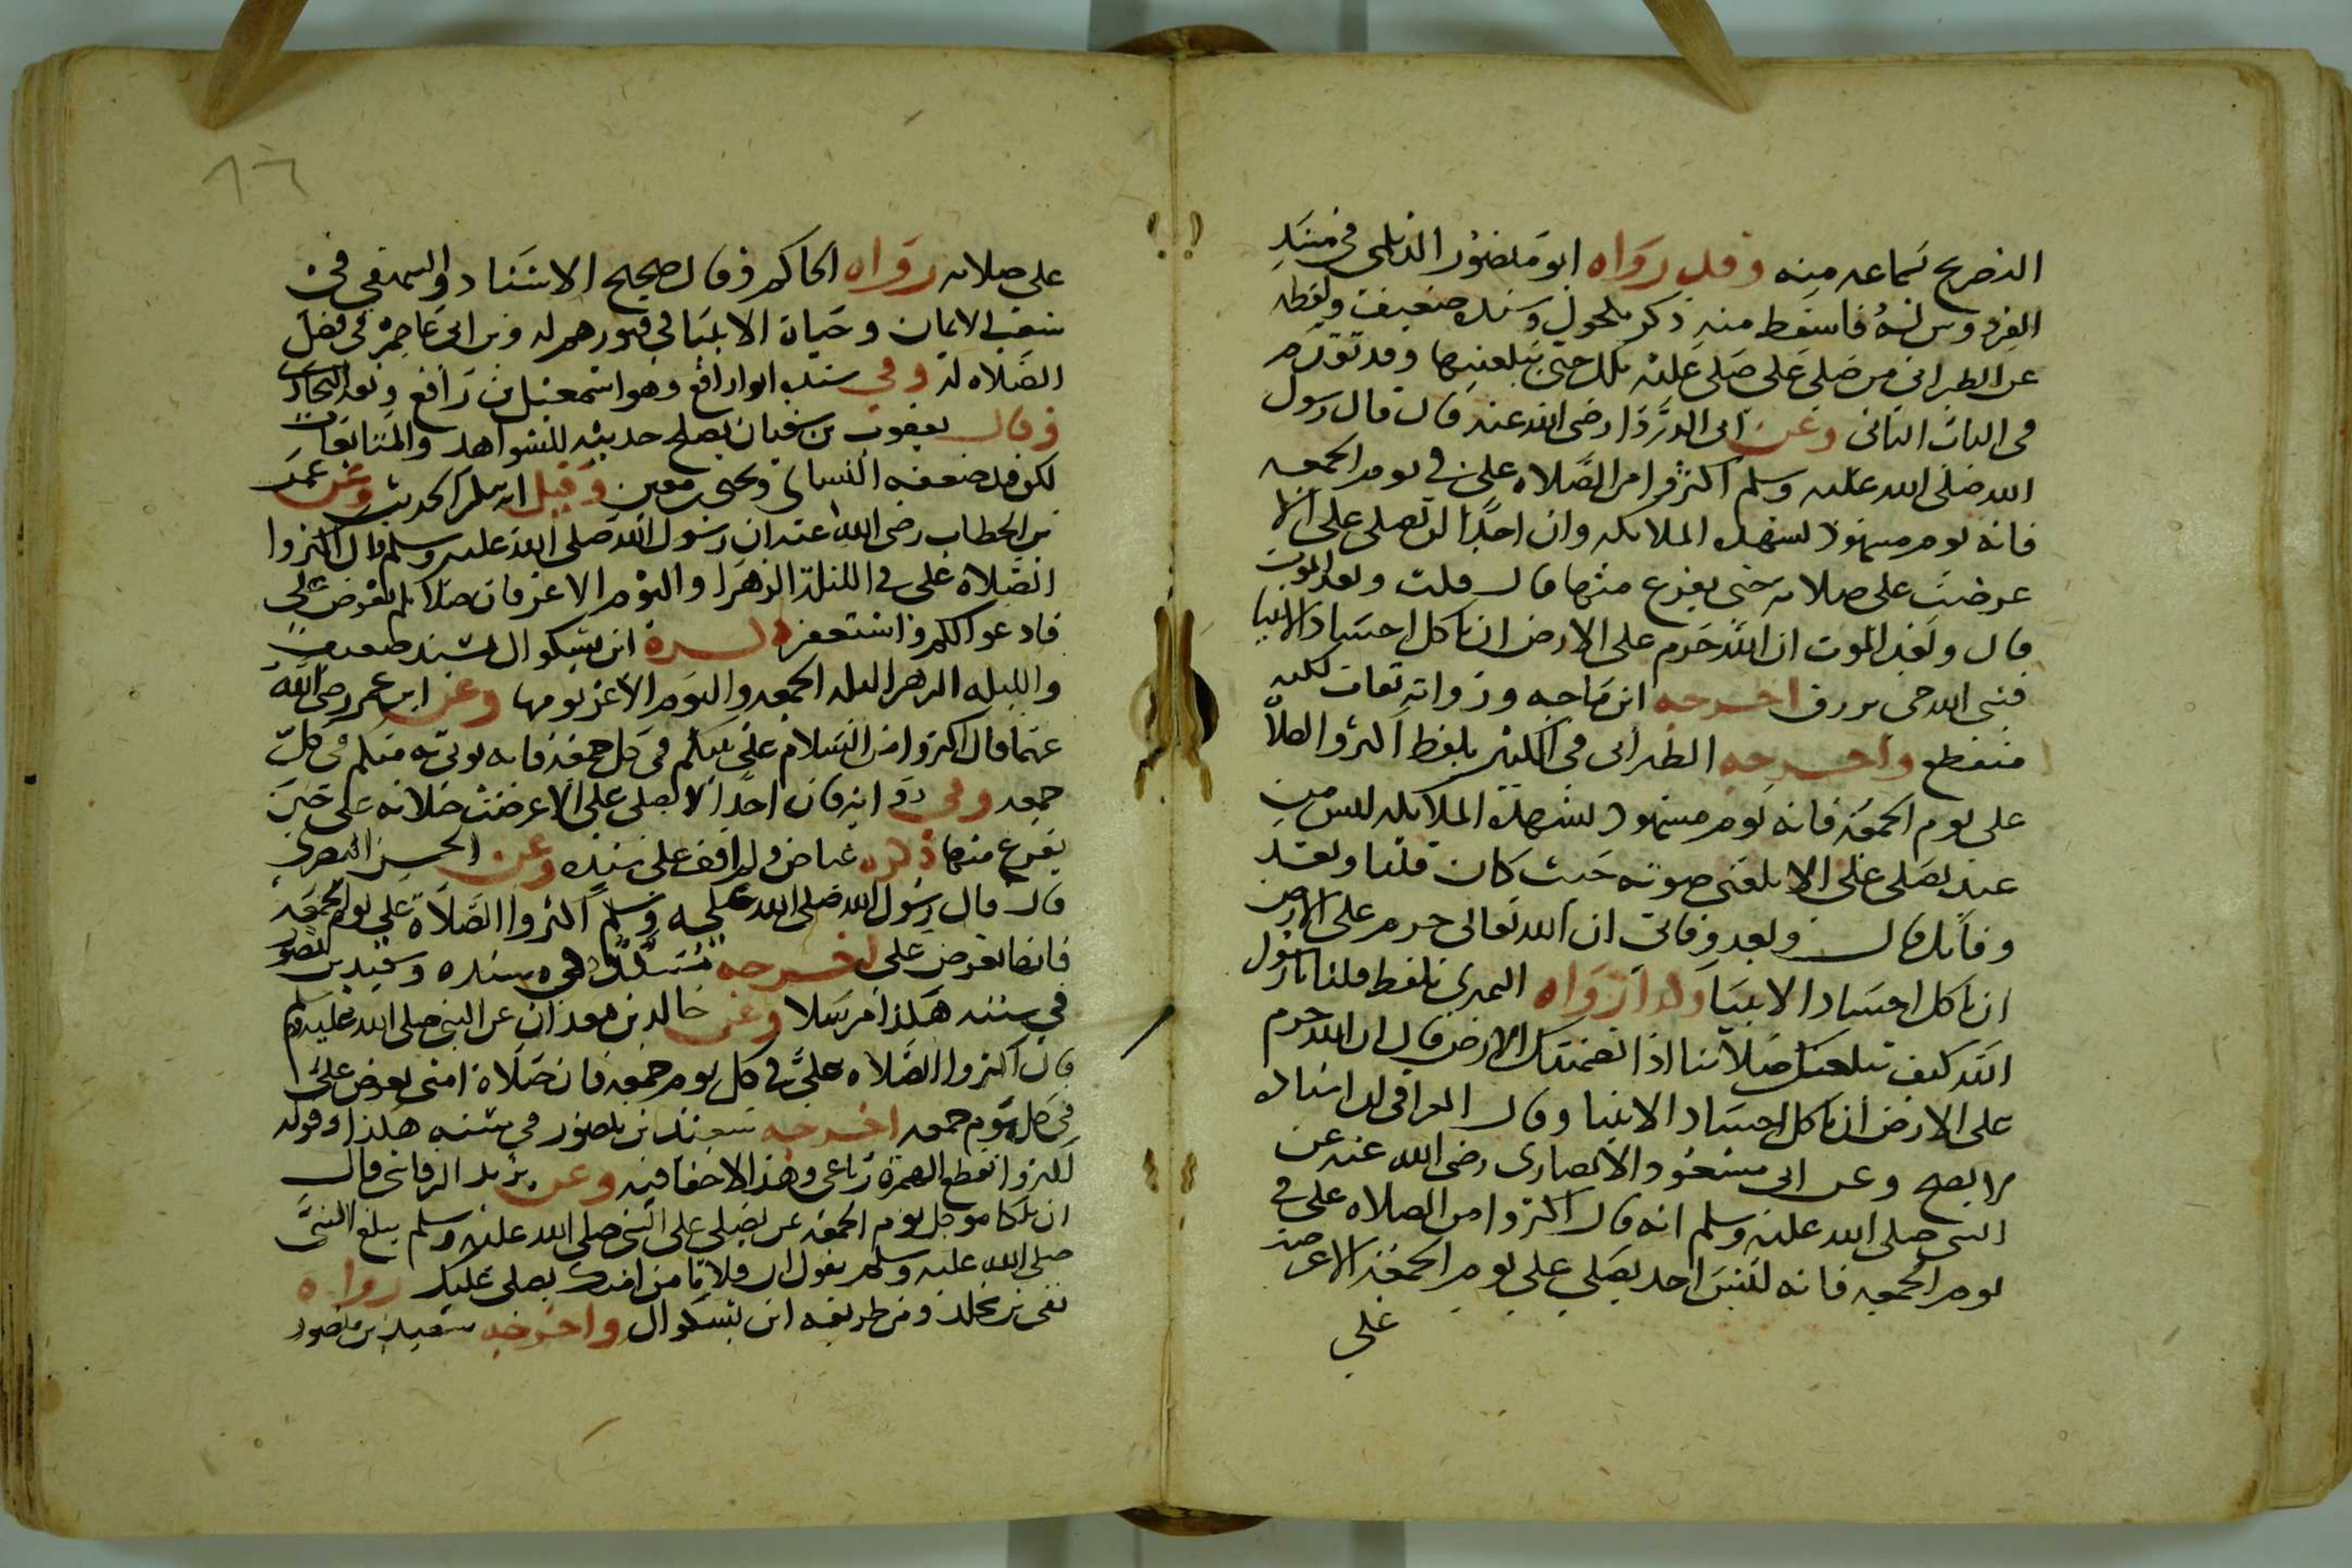 التصريح بسماعه منه وقد رواه ابو منصور الديلمي في مسند
الفردوس له فاسقط منه ذكر مكحول وسنده ضعيف ولفظه
عن الطبراني من صلى على صلى عليه ملك حتى يبلغنيها وقد تقدم
في الباب الثاني وعن ابى الدردا رضى الله عنه قال قال رسول
الله صلى الله عليه وسلم اكثروا من الصلاه على في يوم الجمعه
فانه يوم مشهود تشهده الملائكه وان احدا لن يصلى على الا
عرضت على صلاته حتى يفرغ منها قال قلت وبعد الموت
قال وبعد الموت ان الله حرم على الارض ان تاكل اجساد الانبيا
فنبى الله حى يرزق اخرجه ابن ماجه ورواته ثقات لكنه
منقطع واخرجه الطبرانى فى الكبير بلفظ اكثروا الصلاة
على يوم الجمعة فانه يوم مشهود تشهده الملائكه ليس من
عبد يصلى على الا بلغنى صوته حيث كان قلنا وبعد
وفاتك قال وبعد وفاتى ان الله تعالى حرم على الارض
ان تاكل اجساد الانبيا وكذا رواه النميرى بلفظ قلنا يا رسول
الله كيف تبلغك صلاتنا اذا تضمنتك الارض قال ان الله حرم
على الارض ان تاكل اجساد الانبيا وقال العراقى ان اسناده
لا يصح وعن ابى مسعود الانصارى رضى الله عنه عن
النبى صلى الله عليه وسلم انه قال اكثروا من الصلاه على في
يوم الجمعه فانه ليس احد يصلى على يوم الجمعة الا عرضت
على
١٦
على صلاته رواه الحاكم وقال صحيح الاسناد والبيهقى في
شعب الايمان وحياة الانبيا في قبورهم له وبن ابى عاصم في فضل
الصلاه له وفى سنده ابو رافع وهو اسمعيل بن رافع وثقه البخارى
وقال يعقوب بن سفيان يصلح حديثه للشواهد والمتابعات
لكن قد ضعفه النسائى ويحيى بن معين وقيل انه منكر الحديث وعن عمر
بن الخطاب رضى الله عنه ان رسول الله صلى الله عليه وسلم قال اكثروا
الصلاة على في الليلة الزهرا واليوم الاغر فان صلاتكم تعرض على
فادعو لكم واستغفر اسنده ابن بشكوال بسند ضعيف
والليله الزهرا ليله الجمعه واليوم الاغر يومها وعن ابن عمر رضى الله
عنهما قال اكثروا من السلام على نبيكم في كل جمعة فانه يوتى به منكم في كل
جمعه وفى رواية فان احدا لا يصلى على الا عرضت صلاته على حين
يفرغ منها ذكره عياض ولم اقف على سنده وعن الحسن البصرى
قال قال رسول الله صلى الله عليه وسلم اكثروا الصلاة على يوم الجمعة
فانها تعرض على اخرجه مسدد في مسنده وسعيد بن منصور
في سننه هكذا مرسلا وعن خالد بن معدان عن النبى صلى الله عليه وسلم
قال اكثروا الصلاه على في كل يوم جمعه فان صلاة امتى تعرض على
في كل يوم جمعه اخرجه سعيد بن منصور في سننه هكذا وقوله
اكثروا بقطع الهمزة رباعى وهذا لا خفا فيه وعن يزيد الرقاشى قال
ان ملكا موكل يوم الجمعة من يصلى على النبى صلى الله عليه وسلم يبلغ النبى
صلى الله عليه وسلم يقول ان فلانا من امتك يصلى عليك رواه
بقى بن مخلد ومن طريقه ابن بشكوال واخرجه سعيد بن منصور